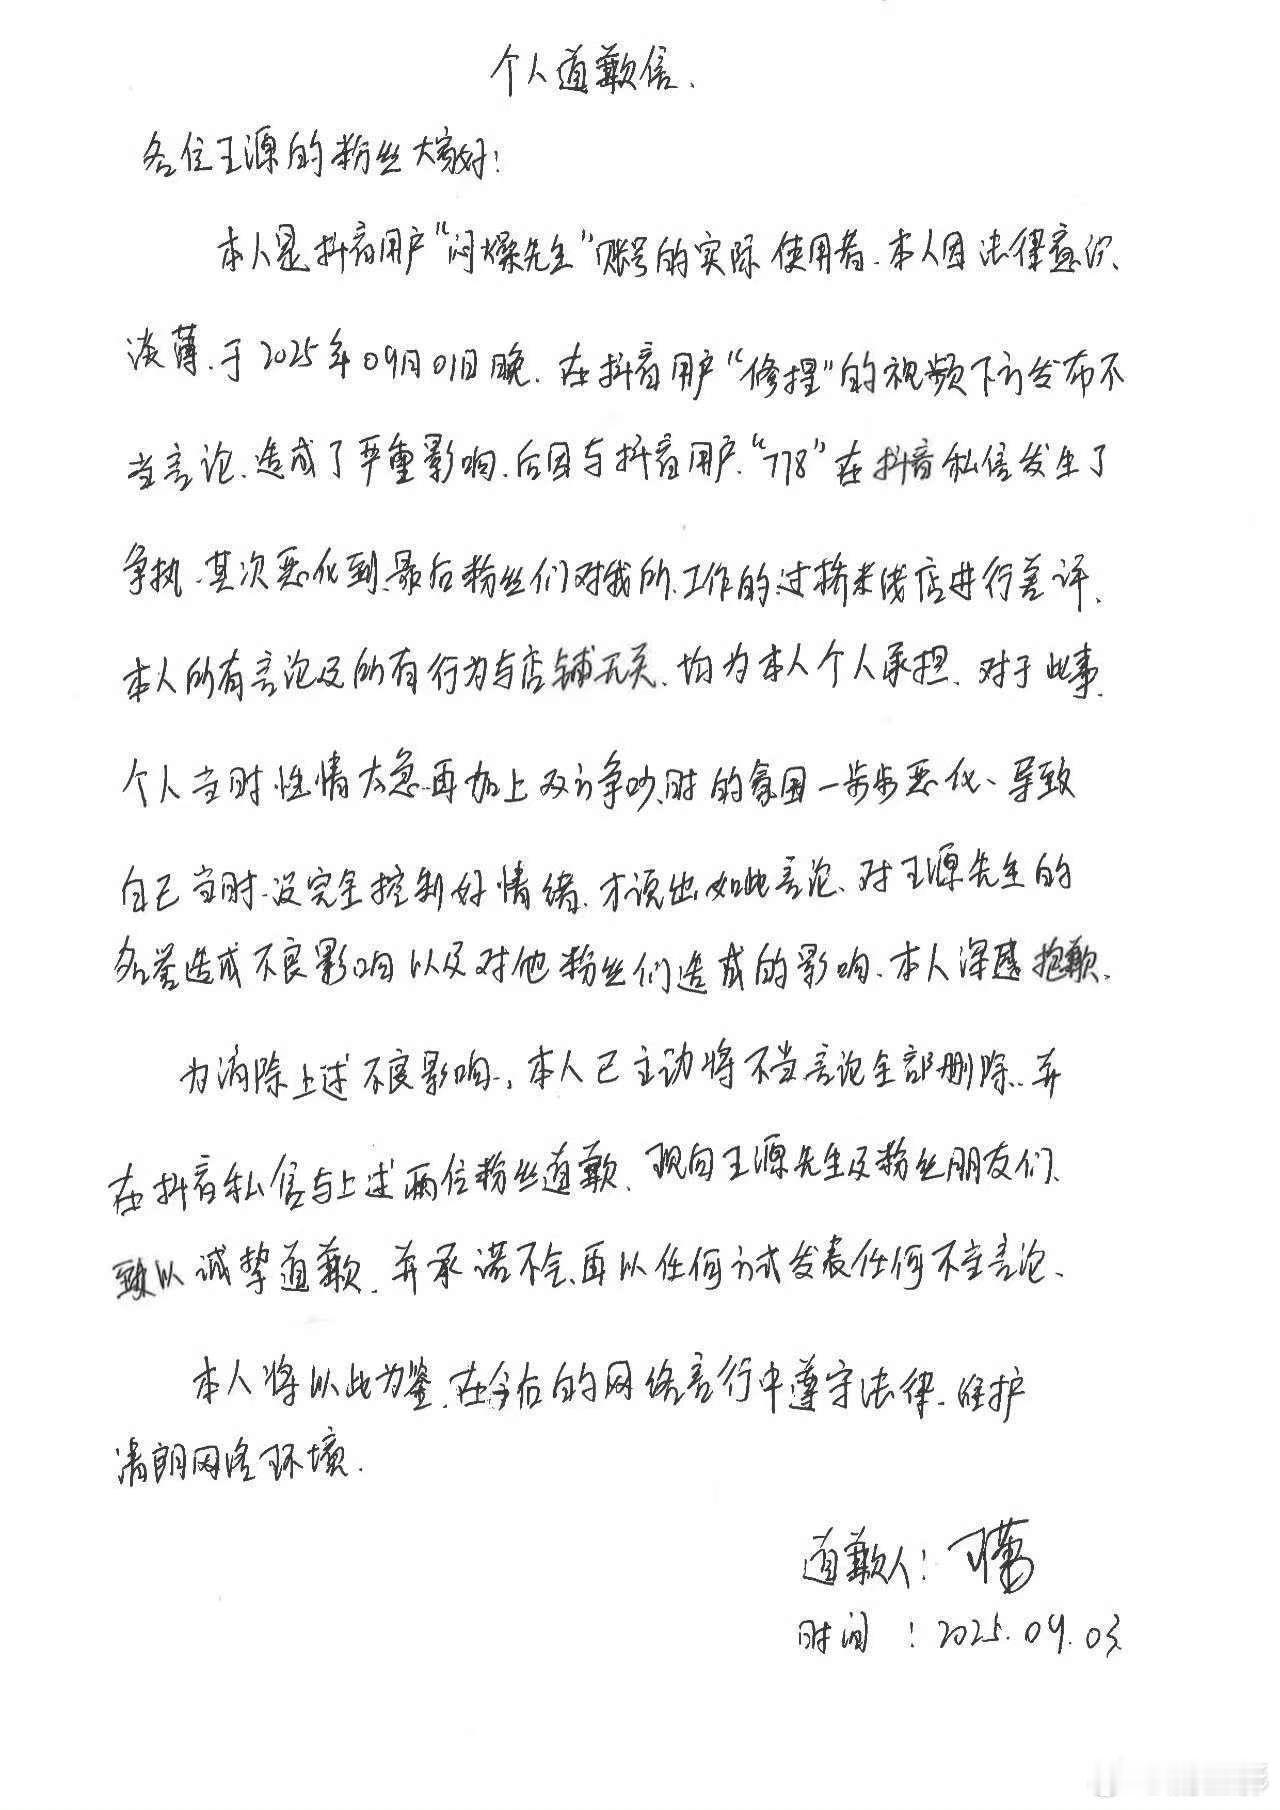 个人道歉信.
各位王源的粉丝大家好:
本人是抖音用户“闷燥先生”账号的实际使用者.本人因法律意识.
淡薄.于2025年09月01日晚.在抖音用户“修捏”的视频下方发布不
当言论.造成了严重影响.后因与抖音用户.“778”在抖音私信发生了
争执.其次恶化到.最后粉丝们对我所.工作的过桥米线店进行差评、
本人所有言论及所有行为与店铺无关.均为本人个人承担.对于此事.
个人当时性情太急.再加上双方争吵.时的氛围一步步恶化、导致
自己当时.没完全控制好情绪.才说出.如此言论、对王源先生的
名誉造成不良影响以及对他粉丝们造成的影响.本人深感抱歉.
为消除上述不良影响.,本人已主动将不当言论全部删除..并
在抖音私信与上述两位粉丝道歉.现向王源先生及粉丝朋友们、
致以诚挚道歉.并承诺不会.再以任何方式发表任何不当言论、
本人将以此为鉴.在今后的网络言行中遵守法律.维护
清朗网络环境.
道歉人:
时间:2025.09.03